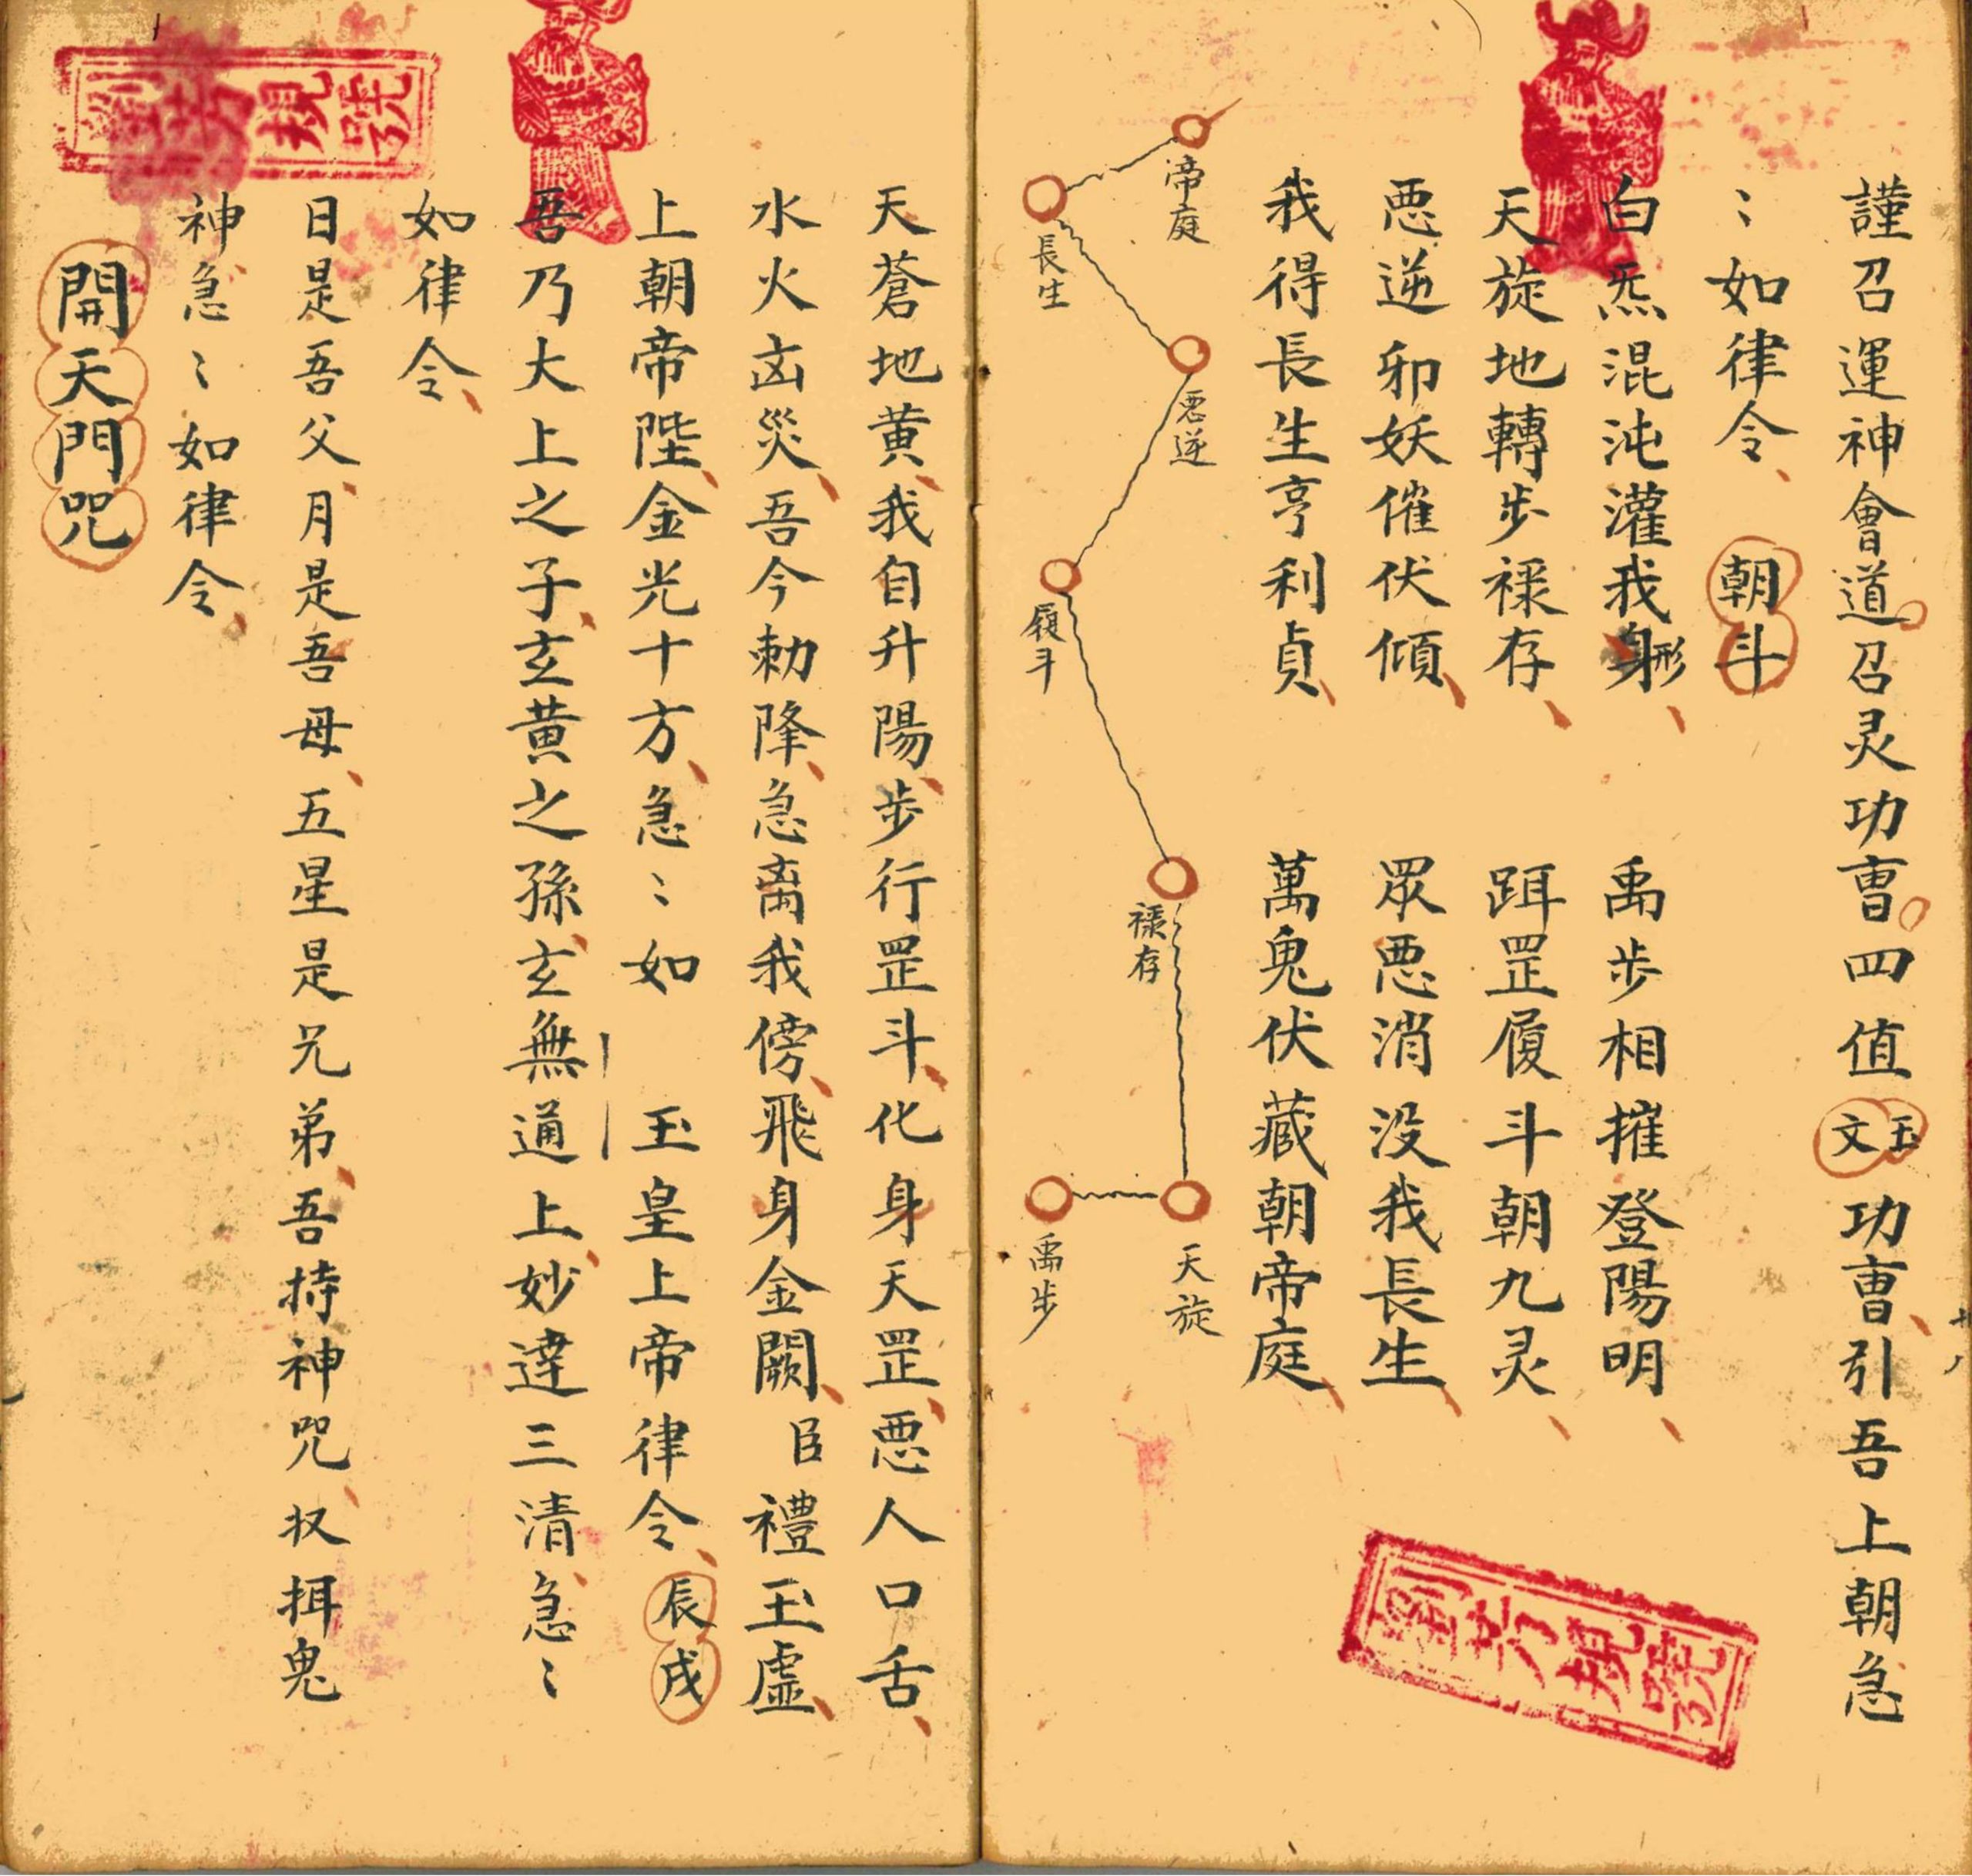 謹召運神會道召灵功曹四值玉文功曹引吾上朝急
〻如律令 朝斗
白炁混沌灌我身形 禹步相摧登陽明
天旋地轉步禄存 跙罡履斗朝九灵
悪逆邪妖催伏傾 眾悪消没我長生
我得長生亨利貞 萬鬼伏藏朝帝庭
帝庭
長生
悪逆
履斗
禄存
天旋
禹步
天蒼地黄我自升陽步行罡斗化身天罡悪人口舌
水火凶災吾今勅降急离我傍飛身金闕臣禮玉虛
上朝帝陛金光十方急〻如 玉皇上帝律令 辰戌
吾乃大上之子玄黄之孫玄無通上妙達三清急〻
如律令
日是吾父月是吾母五星是兄弟吾持神咒收捐鬼
神急〻如律令
開天門咒